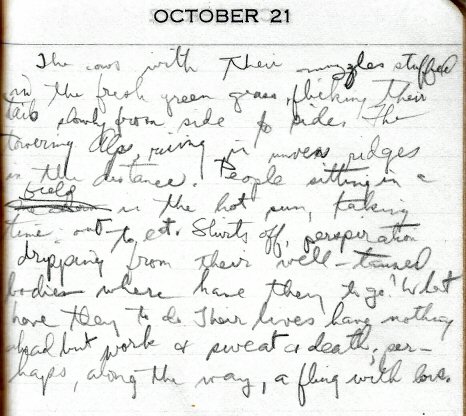 OCTOBER 21
The cows with their muzzles stuffed
in the fresh green grass, flicking their
tails slowly from side to side. The
towering Alps, rising in uneven ridges
in the distance. People sitting in a
field
in the hot sun, taking
time out to eat. Shirts off, perspiration
dripping from their well-tanned
bodies where have they to go? What
have they to do Their lives have nothing
ahead but work & sweat & death, per-
haps, along the way, a fling with love.